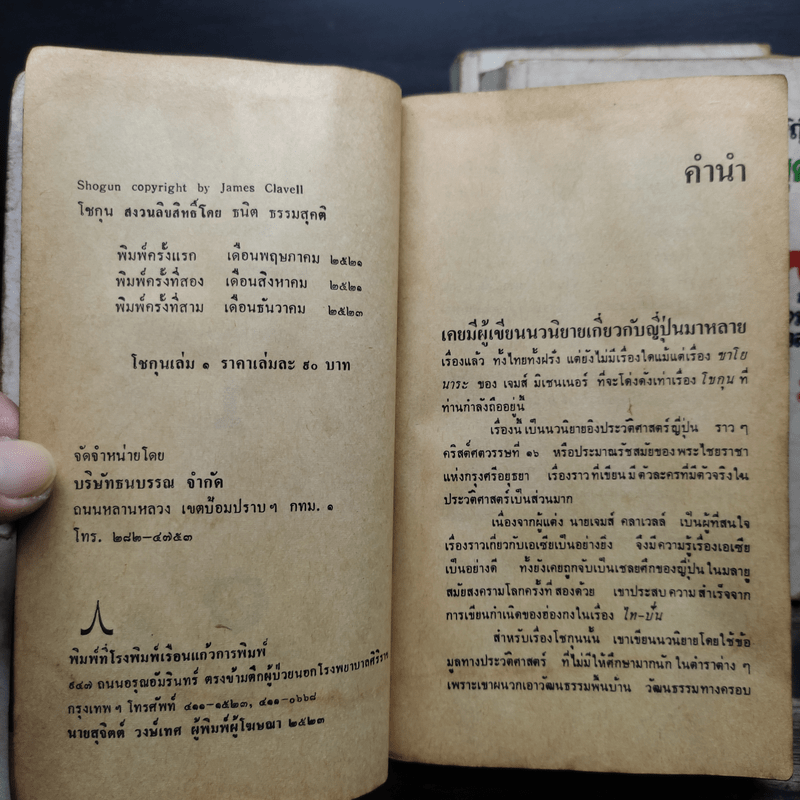 Shogun copyright by James Clavell
โชกุน สงวนลิขสิทธิ์โดย ธนิต ธรรมสุคติ
พิมพ์ครั้งแรก เดือนพฤษภาคม ๒๕๒๑
พิมพ์ครั้งที่สอง เดือนสิงหาคม ๒๕๒๑
พิมพ์ครั้งที่สาม เดือนธันวาคม ๒๕๒๓
โชกุนเล่ม ๑ ราคาเล่มละ ๙๐ บาท
จัดจำหน่ายโดย
บริษัทธนบรรณ จำกัด
ถนนหลานหลวง เขตป้อมปราบฯ กทม. ๑
โทร. ๒๘๒-๔๗๕๓
พิมพ์ที่โรงพิมพ์เรือนแก้วการพิมพ์
๙๔๗ ถนนอรุณอัมรินทร์ ตรงข้ามตึกผู้ป่วยนอกโรงพยาบาลศิริราช
กรุงเทพฯ โทรศัพท์ ๔๑๑-๑๕๒๓, ๔๑๑-๐๖๖๘
นายสุจิตต์ วงษ์เทศ ผู้พิมพ์ผู้โฆษณา ๒๕๒๓
คำนำ
เคยมีผู้เขียนนวนิยายเกี่ยวกับญี่ปุ่นมาหลาย
เรื่องแล้ว ทั้งไทยทั้งฝรั่ง แต่ยังไม่มีเรื่องใดแม้แต่เรื่อง ซาโย
นาระ ของ เจมส์ มิเชนเนอร์ ที่จะโด่งดังเท่าเรื่อง โชกุน ที่
ท่านกำลังถืออยู่นี้
เรื่องนี้เป็นนวนิยายอิงประวัติศาสตร์ญี่ปุ่น ราว ๆ
คริสต์ศตวรรษที่ ๑๖ หรือประมาณรัชสมัยของพระไชยราชา
แห่งกรุงศรีอยุธยา เรื่องราวที่เขียนมีตัวละครที่มีตัวจริงใน
ประวัติศาสตร์เป็นส่วนมาก
เนื่องจากผู้แต่ง นายเจมส์ คลาเวลล์ เป็นผู้ที่สนใจ
เรื่องราวเกี่ยวกับเอเซียเป็นอย่างยิ่ง จึงมีความรู้เรื่องเอเซีย
เป็นอย่างดี ทั้งยังเคยถูกจับเป็นเชลยศึกของญี่ปุ่นในมลายู
สมัยสงครามโลกครั้งที่สองด้วย เขาประสบความสำเร็จจาก
การเขียนกำเนิดของฮ่องกงในเรื่อง ไท-ปั่น
สำหรับเรื่องโชกุนนั้น เขาเขียนนวนิยายโดยใช้ข้อ
มูลทางประวัติศาสตร์ ที่ไม่มีให้ศึกษามากนักในตำราต่าง ๆ
เพราะเขาผนวกเอาวัฒนธรรมพื้นบ้าน วัฒนธรรมทางครอบ